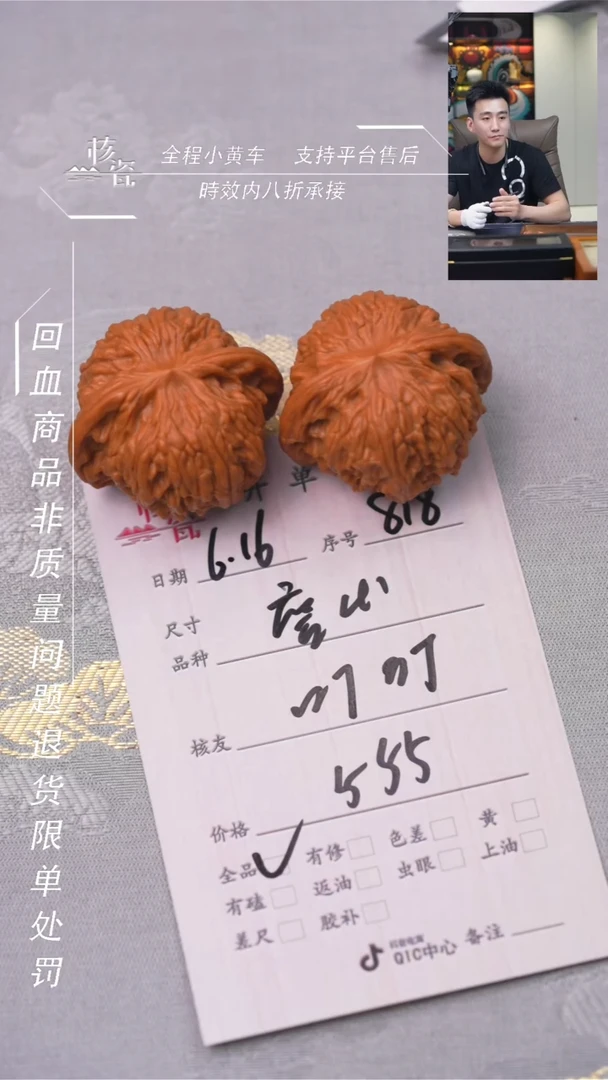 核瓷
全程小黄车 支持平台售后
時效内八折承接
回血商品非质量问题退货限单处罚
开单
日期 6.16 序号 818
尺寸
品种
叮叮
核友
555
价格
全品 ✓ 有修 色差 黄
有磕 返油 虫眼 上油
差尺 胶补
抖音电商
QIC中心 备注